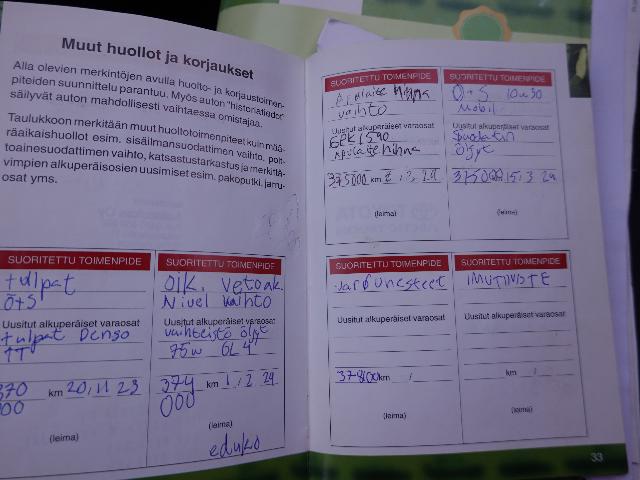 Muut huollot ja korjaukset
Alla olevien merkintöjen avulla huolto- ja korjaustoimen-
piteiden suunnittelu parantuu. Myös auton "historiatiedot"
säilyvät auton mahdollisesti vaihtaessa omistajaa.
Taulukkoon merkitään muut huoltotoimenpiteet kuin mää-
räaikaishuollot esim. sisäilmansuodattimen vaihto, polt-
toainesuodattimen vaihto, katsastustarkastus ja merkittä-
vimpien alkuperäisosien uusimiset esim. pakoputki, jarru-
osat yms.
SUORITETTU TOIMENPIDE
tulpat
Ö+S
Uusitut alkuperäiset varaosat
tulpat Denso
TT
370 km 20,11 23
000
(leima)
SUORITETTU TOIMENPIDE
Oik. vetoak.
Nivel vaihto
Uusitut alkuperäiset varaosat
vaihteisto öljyt
75w GL4
374 km 1,2 24
000
(leima)
eduko
SUORITETTU TOIMENPIDE
hihna
vaihto
Uusitut alkuperäiset varaosat
6PK1590
hihna
375000 km
(leima)
SUORITETTU TOIMENPIDE
Ö+S 10w30
Mobil
Uusitut alkuperäiset varaosat
Suodatin
Öljyt
375000 km 15,3 24
(leima)
SUORITETTU TOIMENPIDE
Uusitut alkuperäiset varaosat
km
(leima)
SUORITETTU TOIMENPIDE
Uusitut alkuperäiset varaosat
km
(leima)
33